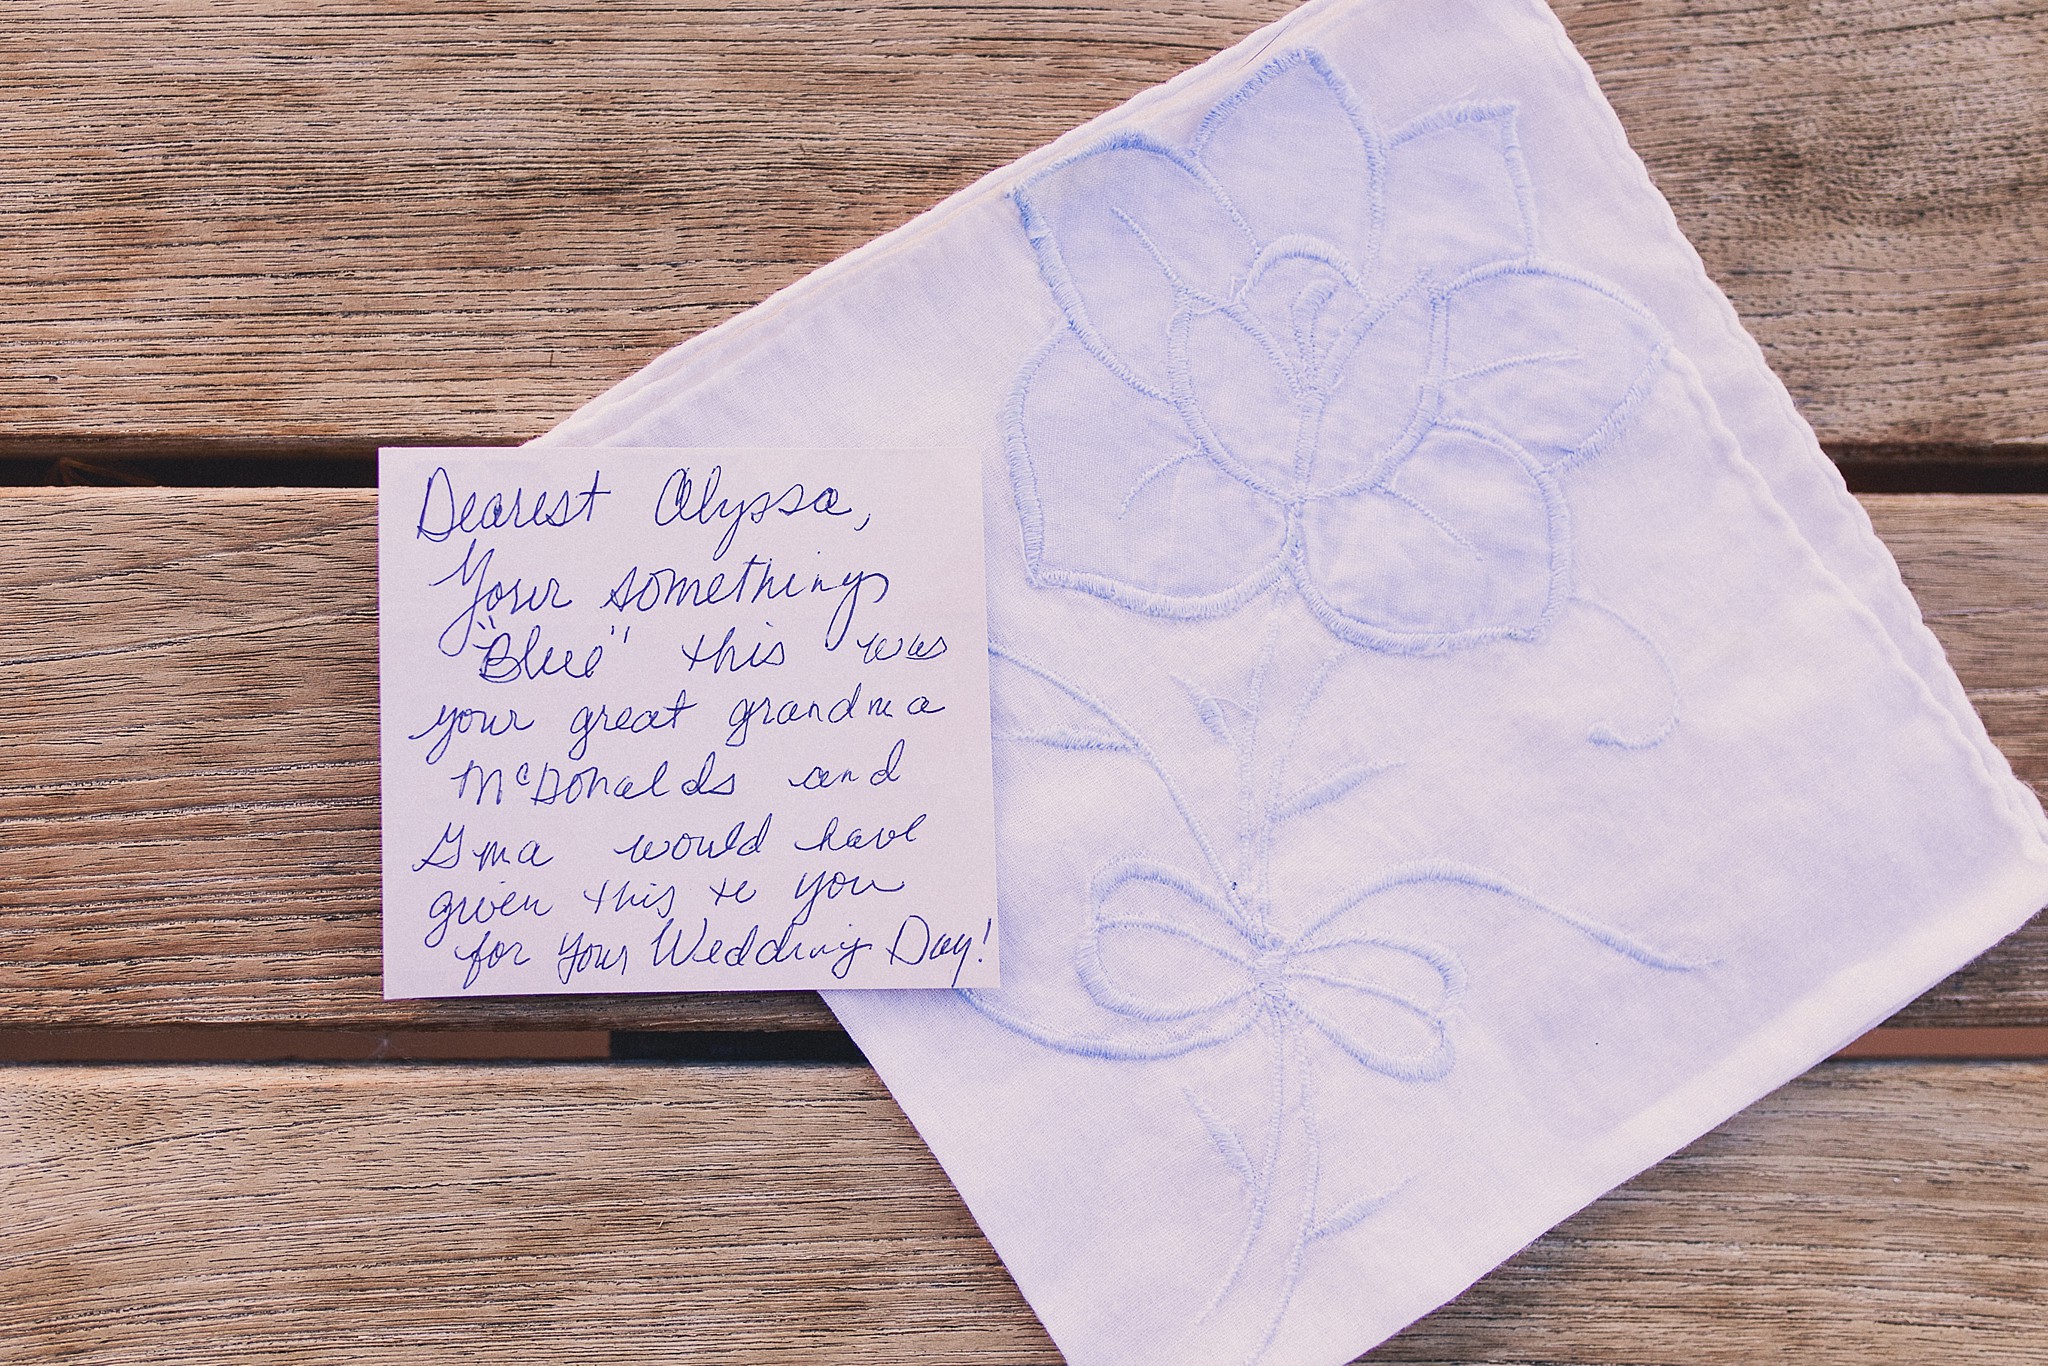 Dearest Alyssa,
Your something
"Blue" this was
your great grandma
McDonalds and
Gma would have
given this to you
for your Wedding Day!